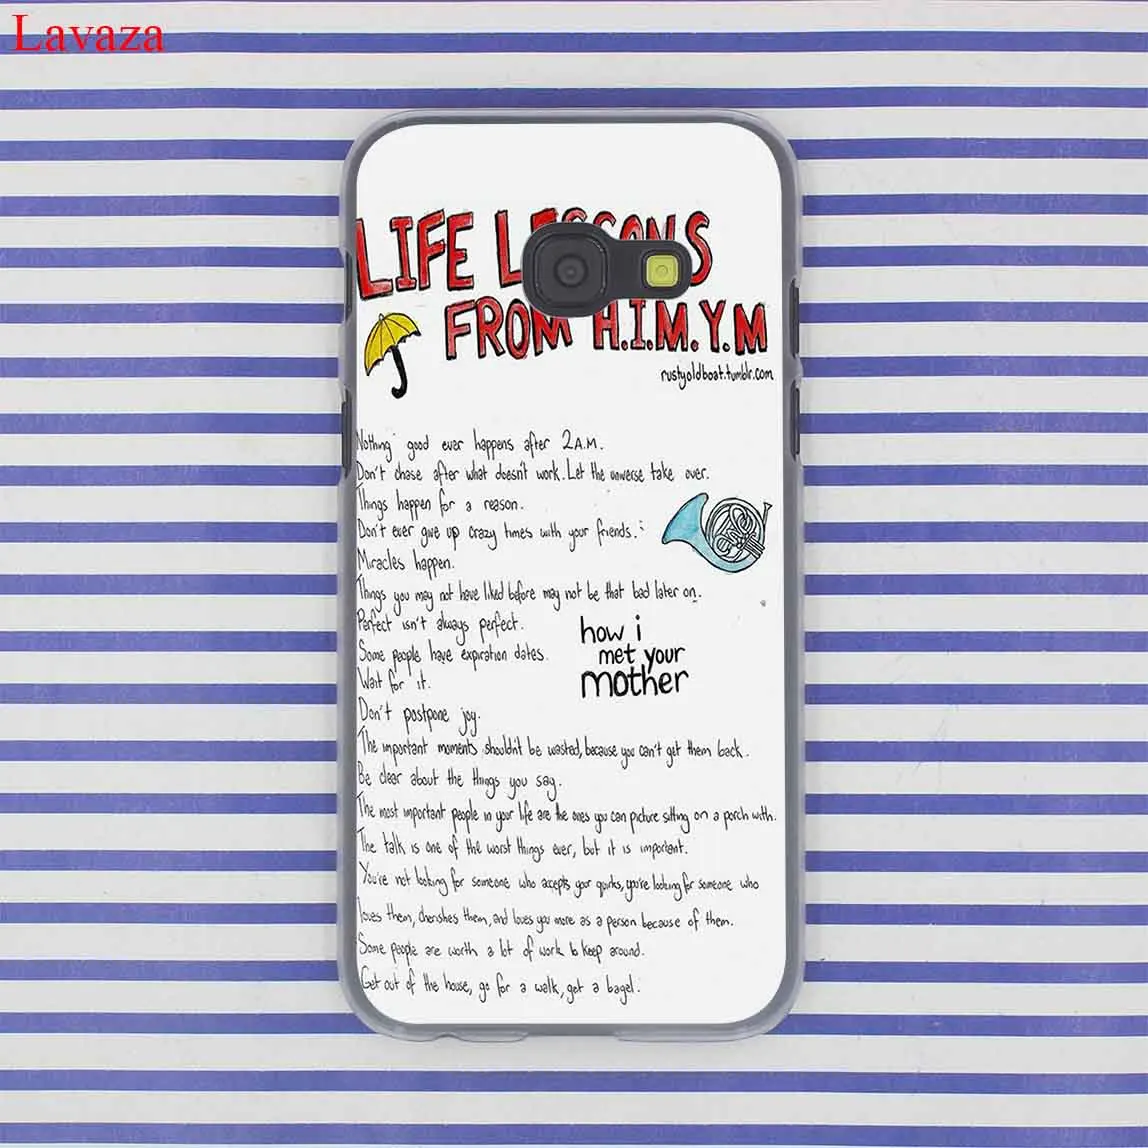 Lavaza
LIFE LESSONS
FROM H.I.M.Y.M
rustyoldboat.tumblr.com
Nothing good ever happens after 2A.M.
Don't chase after what doesn't work. Let the universe take over.
Things happen for a reason.
Don't ever give up crazy times with your friends.
Miracles happen.
Things you may not have liked before may not be that bad later on.
Perfect isn't always perfect.
how i
met your
mother
Some people have expiration dates.
Wait for it.
Don't postpone joy.
The important moments shouldn't be wasted, because you can't get them back.
Be clear about the things you say.
The most important people in your life are the ones you can picture sitting on a porch with.
The talk is one of the worst things ever, but it is important.
You're not looking for someone who accepts your quirks, you're looking for someone who
loves them, cherishes them, and loves you more as a person because of them.
Some people are worth a lot of work to keep around.
Get out of the house, go for a walk, get a bagel.